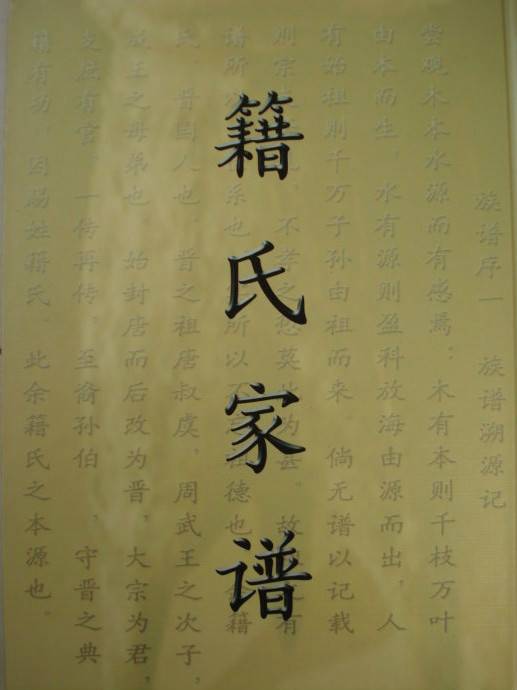 籍氏家谱
族谱序一 族谱溯源记
尝观木本水源而有感焉：木有本则千枝万叶
由本而生，水有源则盈科放海由源而出，人
有始祖则千万子孙由祖而来。倘无谱以记载
则宗 不孝之 莫 为甚。故 有
谱所 系也 所以不 德也 籍
氏，晋国人也。晋之祖唐叔虞，周武王之次子，
成王之母弟也。始封唐而后改为晋，大宗为君，
支庶有官。一传再传，至裔孙伯 ，守晋之典
籍有功，因赐姓籍氏。此余籍氏之本源也。